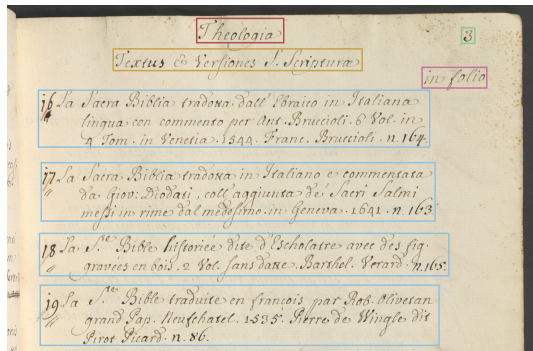 Theologia
3
Textus & Versiones S. Scripturæ
in folio
16 La Sacra Biblia tradotta dall' Ebraico in Italiana
lingua con commento per Ant. Bruccioli. 6 Vol. in
4 Tom. in Venetia. 1544. Franc. Bruccioli. n. 164.
17 La Sacra Biblia tradotta in Italiano e commentata
da Giov: Diodati, coll' aggiunta de' Sacri Salmi
messi in rime dal medesimo. in Geneva. 1641. n. 163
18 La S.te Bible historiée dite d'Escholatre avec des fig.
gravées en bois. 2 Vol. sans datte. Barthel. Verard. n. 165.
19 La S.te Bible traduite en françois par Rob. Olivetan
grand Pap. Neufchatel. 1535. Pierre de Wingle dit
Pirot Picard. n. 86.